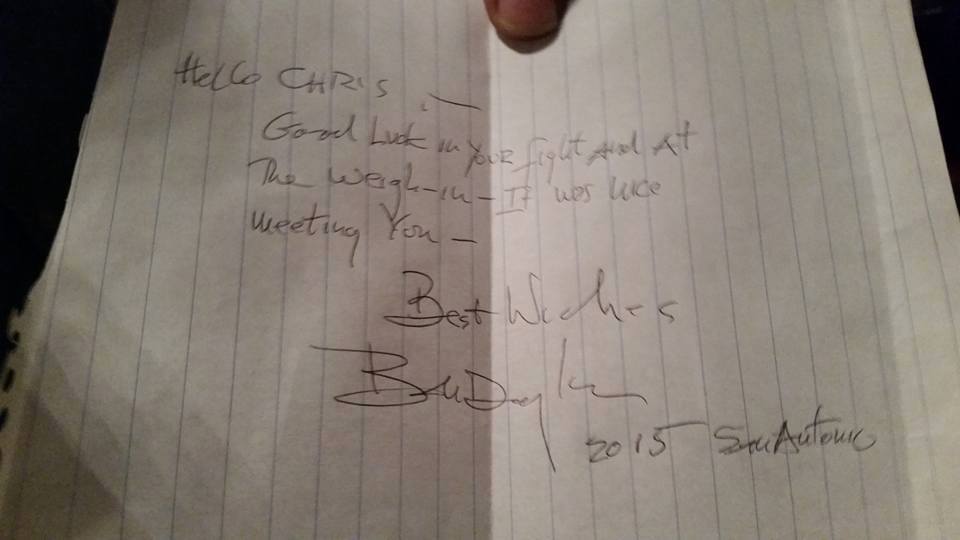 Hello CHRIS
Good Luck in your fight and At
The Weigh-in - It was nice
meeting You -
Best Wishes
2015 San Antonio